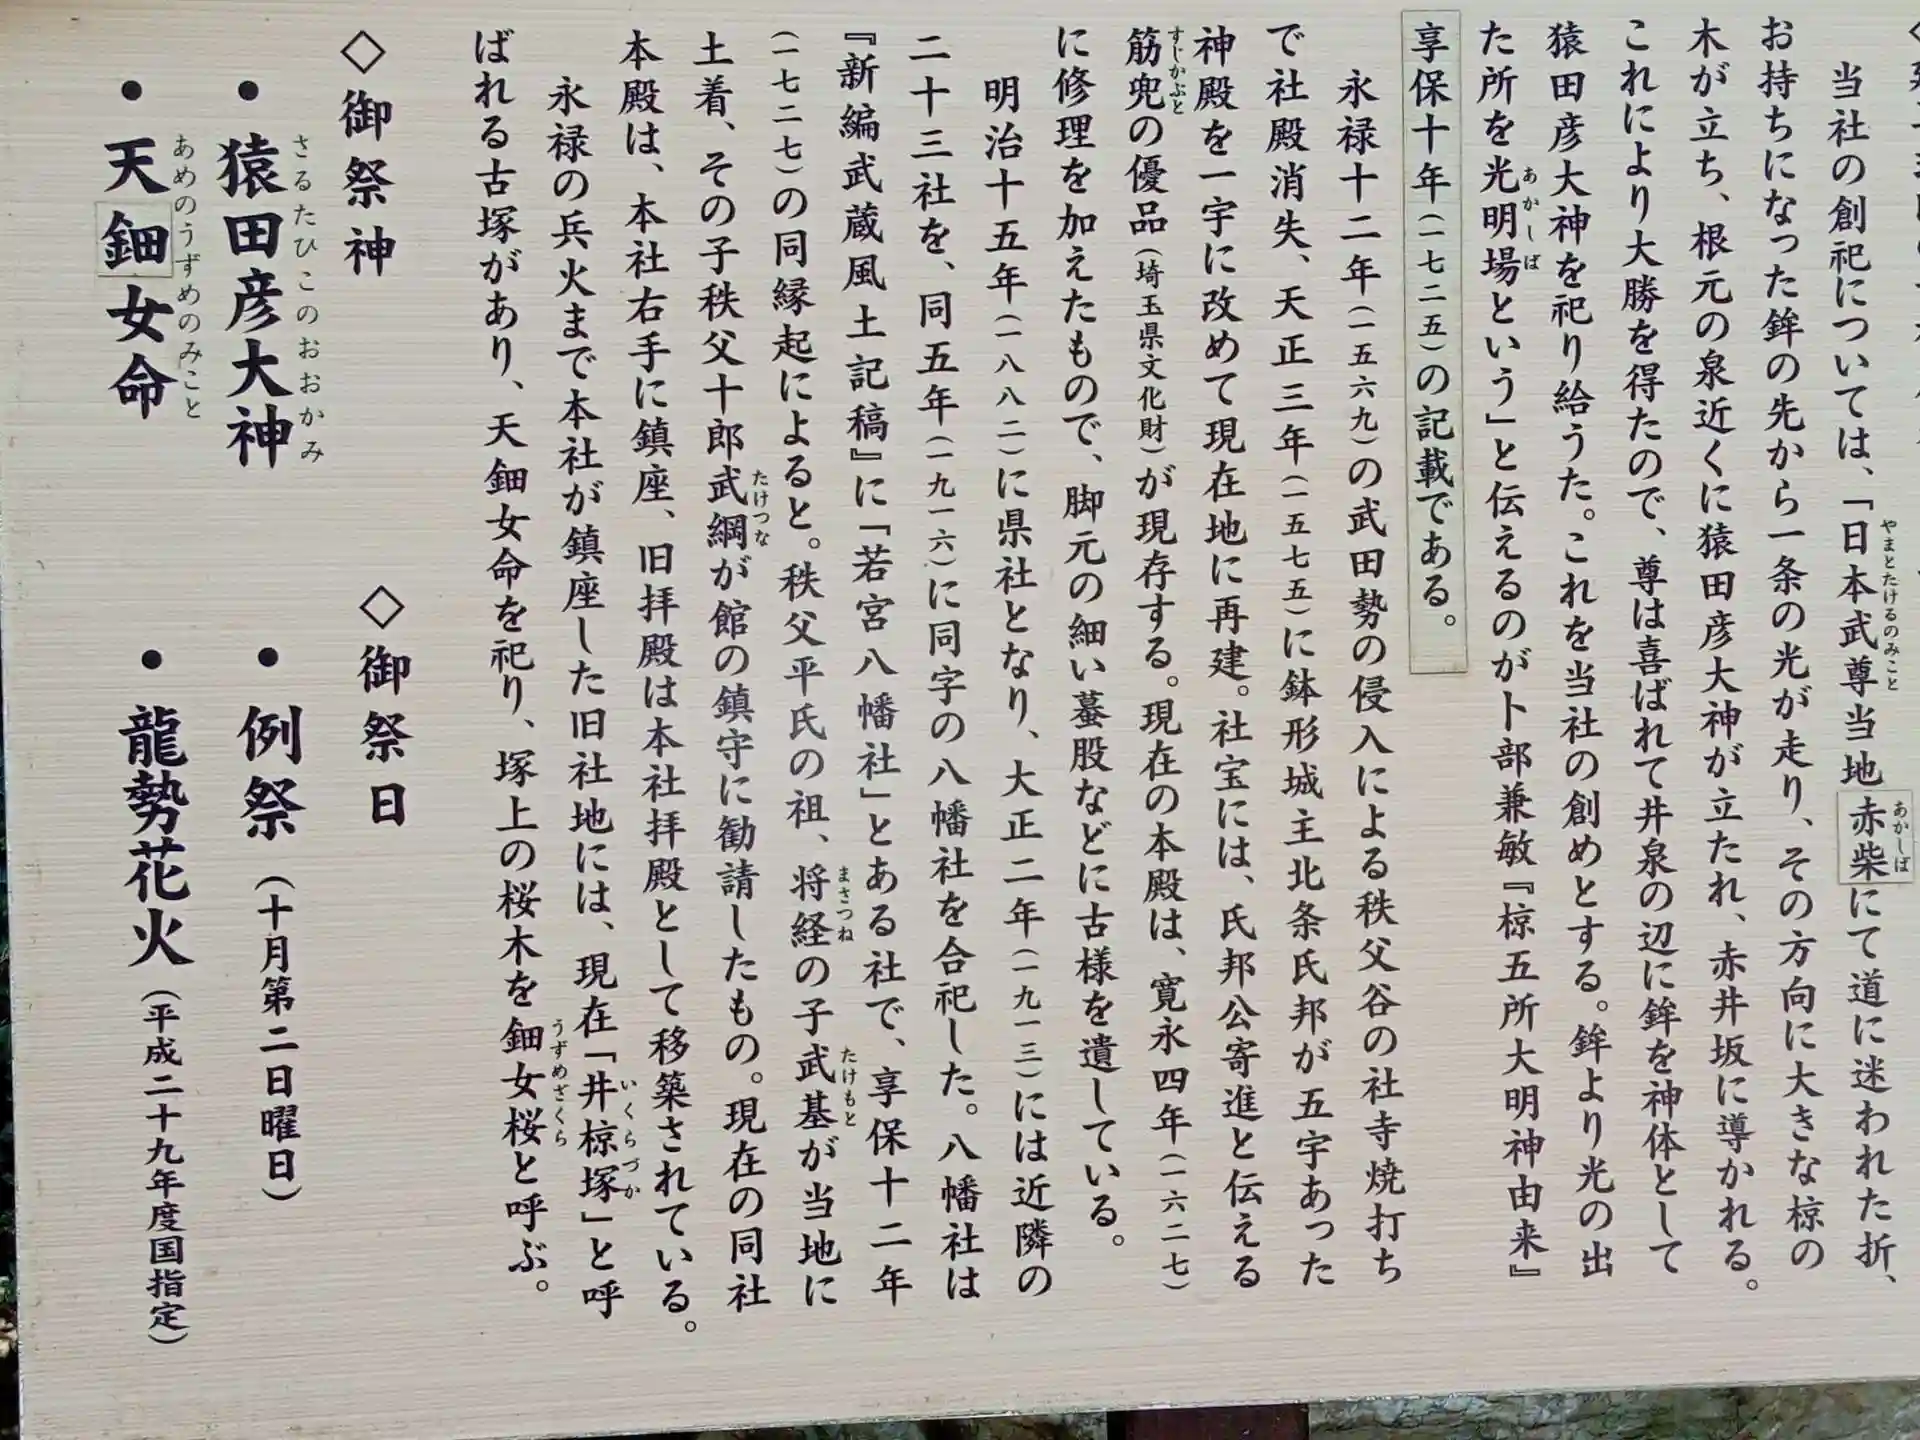 当社の創祀については、「日本武尊当地赤柴にて道に迷われた折、
やまとたけるのみこと
あかしば
お持ちになった鉾の先から一条の光が走り、その方向に大きな椋の
木が立ち、根元の泉近くに猿田彦大神が立たれ、赤井坂に導かれる。
これにより大勝を得たので、尊は喜ばれて井泉の辺に鉾を神体として
猿田彦大神を祀り給うた。これを当社の創めとする。鉾より光の出
た所を光明場という」と伝えるのが卜部兼敏『椋五所大明神由来』
あかしば
享保十年(一七二五)の記載である。
永禄十二年(一五六九)の武田勢の侵入による秩父谷の社寺焼打ち
で社殿消失、天正三年(一五七五)に鉢形城主北条氏邦が五宇あった
神殿を一宇に改めて現在地に再建。社宝には、氏邦公寄進と伝える
筋兜の優品(埼玉県文化財)が現存する。現在の本殿は、寛永四年(一六二七)
すじかぶと
に修理を加えたもので、脚元の細い蟇股などに古様を遺している。
明治十五年(一八八二)に県社となり、大正二年(一九一三)には近隣の
二十三社を、同五年(一九一六)に同字の八幡社を合祀した。八幡社は
『新編武蔵風土記稿』に「若宮八幡社」とある社で、享保十二年
(一七二七)の同縁起によると。秩父平氏の祖、将経の子武基が当地に
まさつね
たけもと
土着、その子秩父十郎武綱が館の鎮守に勧請したもの。現在の同社
たけつな
本殿は、本社右手に鎮座、旧拝殿は本社拝殿として移築されている。
永禄の兵火まで本社が鎮座した旧社地には、現在「井椋塚」と呼
いくらづか
ばれる古塚があり、天鈿女命を祀り、塚上の桜木を鈿女桜と呼ぶ。
うずめざくら
◇御祭神
・猿田彦大神
さるたひこのおおかみ
・天鈿女命
あめのうずめのみこと
◇御祭日
・例祭(十月第二日曜日)
・龍勢花火(平成二十九年度国指定)